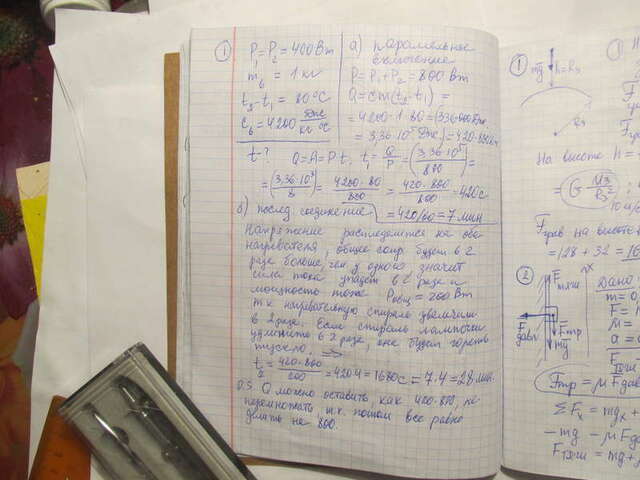 ① P₁=P₂=400Вт
m_в = 1 кг
t₂-t₁ = 80°C
c_в=4200 Дж/кг °C
t-?
а) параллельное
включение
P=P₁+P₂=800 Вт
Q=cm(t₂-t₁) =
=4200·1·80=(336·000 Дж)
=3,36·10⁵ Дж)=420·800
Q=A=Pt, t₁=Q/P=(3,36·10⁵/800)=
=(3,36·10³/8)=4200·80/800=420·800/800=420с
=420/60=7 мин
б) послед. соединение
Напряжение распределится на оба
нагревателя, общее сопр. будет в 2
раза больше, чем у одного значит
сила тока упадет в 2 раза и
мощность тоже Pобщ=200 Вт
т.к нагревательную спираль увеличили
в 2 раза. Если спираль лампочки
удлинить в 2 раза, она будет гореть
тускло.
t₂=420·800/200=420·4=1680с=7·4=28 мин.
P.S. Q можно оставить как 420·800, не
перемножать, т.к. потом все равно
делить на 800.
①
mg h=R₃
R₃
На высоте h =
=G M₃/R₃²
Fграв на высоте
=128 + 32 = 160
②
Fтяги
Fдавл
Fтр
mg
Дано
m=
F=
μ=
a=
Fтяги
Fтр = μ Fдавл
ΣFx = max
-mg - μFда
Fтяги = mg+